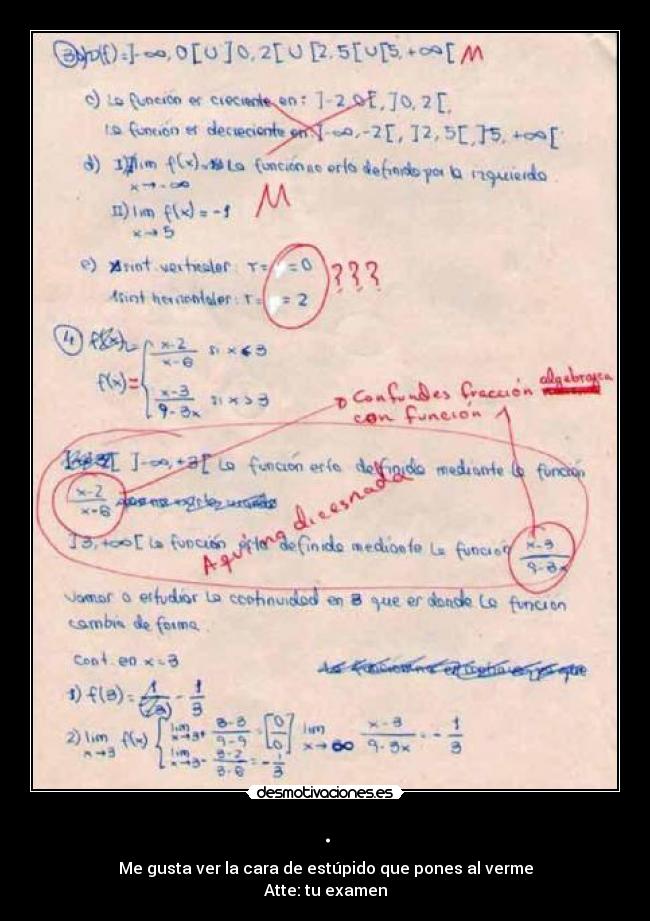 3) D(f)=]-∞,0[ U ]0,2[ U [2,5[ U [5,+∞[ M
c) La función es creciente en: ]-2,0[, ]0,2[,
La función es decreciente en: ]-∞,-2[, ]2,5[, ]5,+∞[
d) I) lim f(x) La función no esta definida por la izquierda.
x→-∞
M
II) lim f(x)=-1
x→5
e) Asint. verticales: r= =0 ???
Asint horizontales: r= =2
4) f(x)= { x-2/x-6 si x<3
x-3/9-3x si x>3
Confundes fracción algebraica
con función
]-∞,+3[ La función esta definida mediante la función
x-2/x-6
Aqui no dices nada
]3,+∞[ La función esta definida mediante la función x-3/9-3x
Vamos a estudiar la continuidad en 3 que es donde la funcion
cambia de forma.
Cont. en x=3
1) f(3)= - 1/3
2) lim f(x) { lim x→3+ 3-3/9-9 = [0/0] lim x→∞ x-3/9-3x = - 1/3
x→3 lim x→3- 3-2/3-6 = - 1/3
desmotivaciones.es
.
Me gusta ver la cara de estúpido que pones al verme
Atte: tu examen